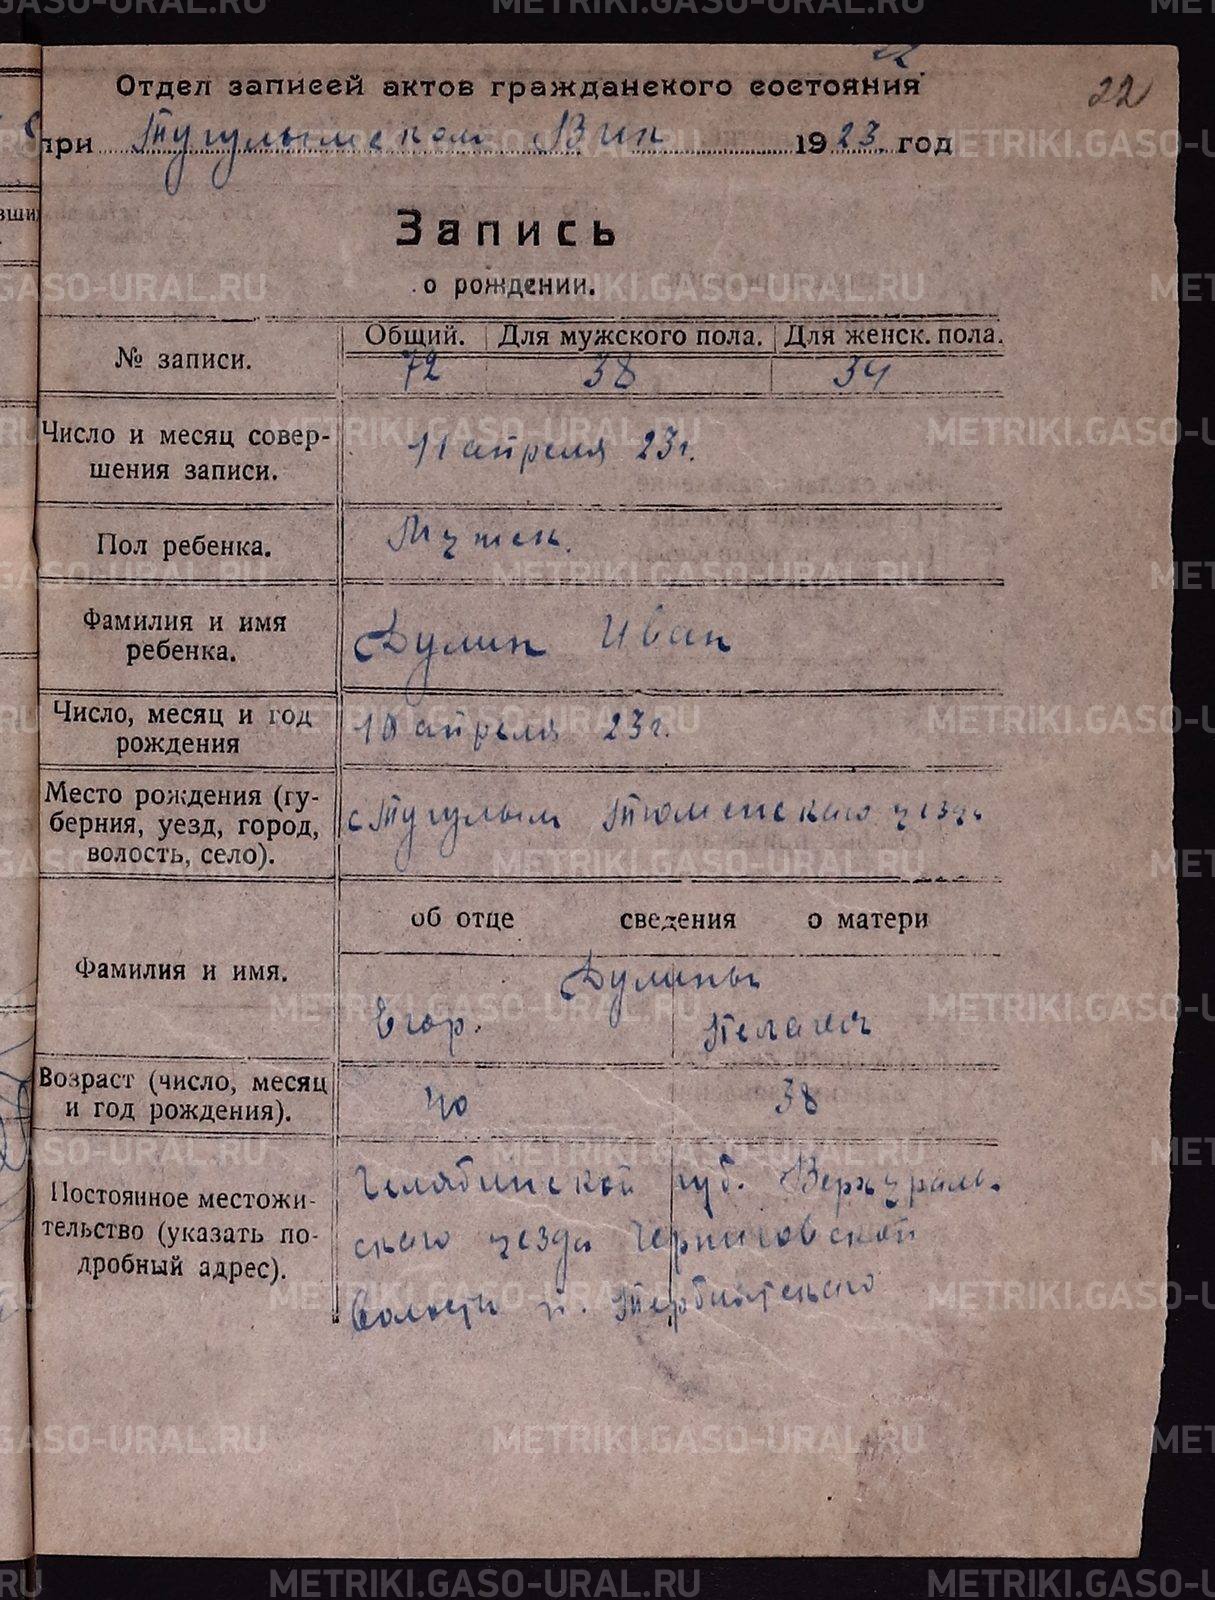 22
Отдел записей актов гражданского состояния
при Тугулымском Вик 1923 год
Запись
о рождении.
№ записи.
Общий. Для мужского пола. Для женск. пола.
72 38 34
Число и месяц совершения записи.
11 апреля 23 г.
Пол ребенка.
Мужск.
Фамилия и имя
ребенка.
Дулин Иван
Число, месяц и год
рождения
10 апреля 23 г.
Место рождения (гу-
берния, уезд, город,
волость, село).
с Тугулым Тюменского уезда
об отце сведения о матери
Фамилия и имя.
Дулины
Егор. Пелагея
Возраст (число, месяц
и год рождения).
40 38
Постоянное местожи-
тельство (указать по-
дробный адрес).
Челябинской губ. Верхураль-
ского уезда Черниговской
волости п.
METRIKI.GASO-URAL.RU